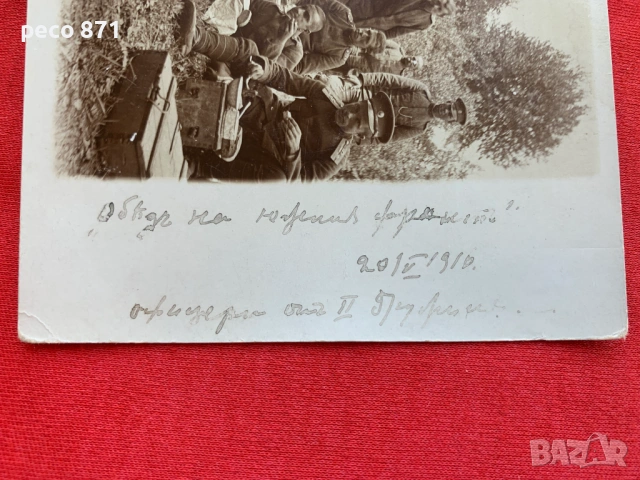 peco 871
„Обѣдъ на южния фронтъ"
20/V 191
офицери отъ II
BAZAR